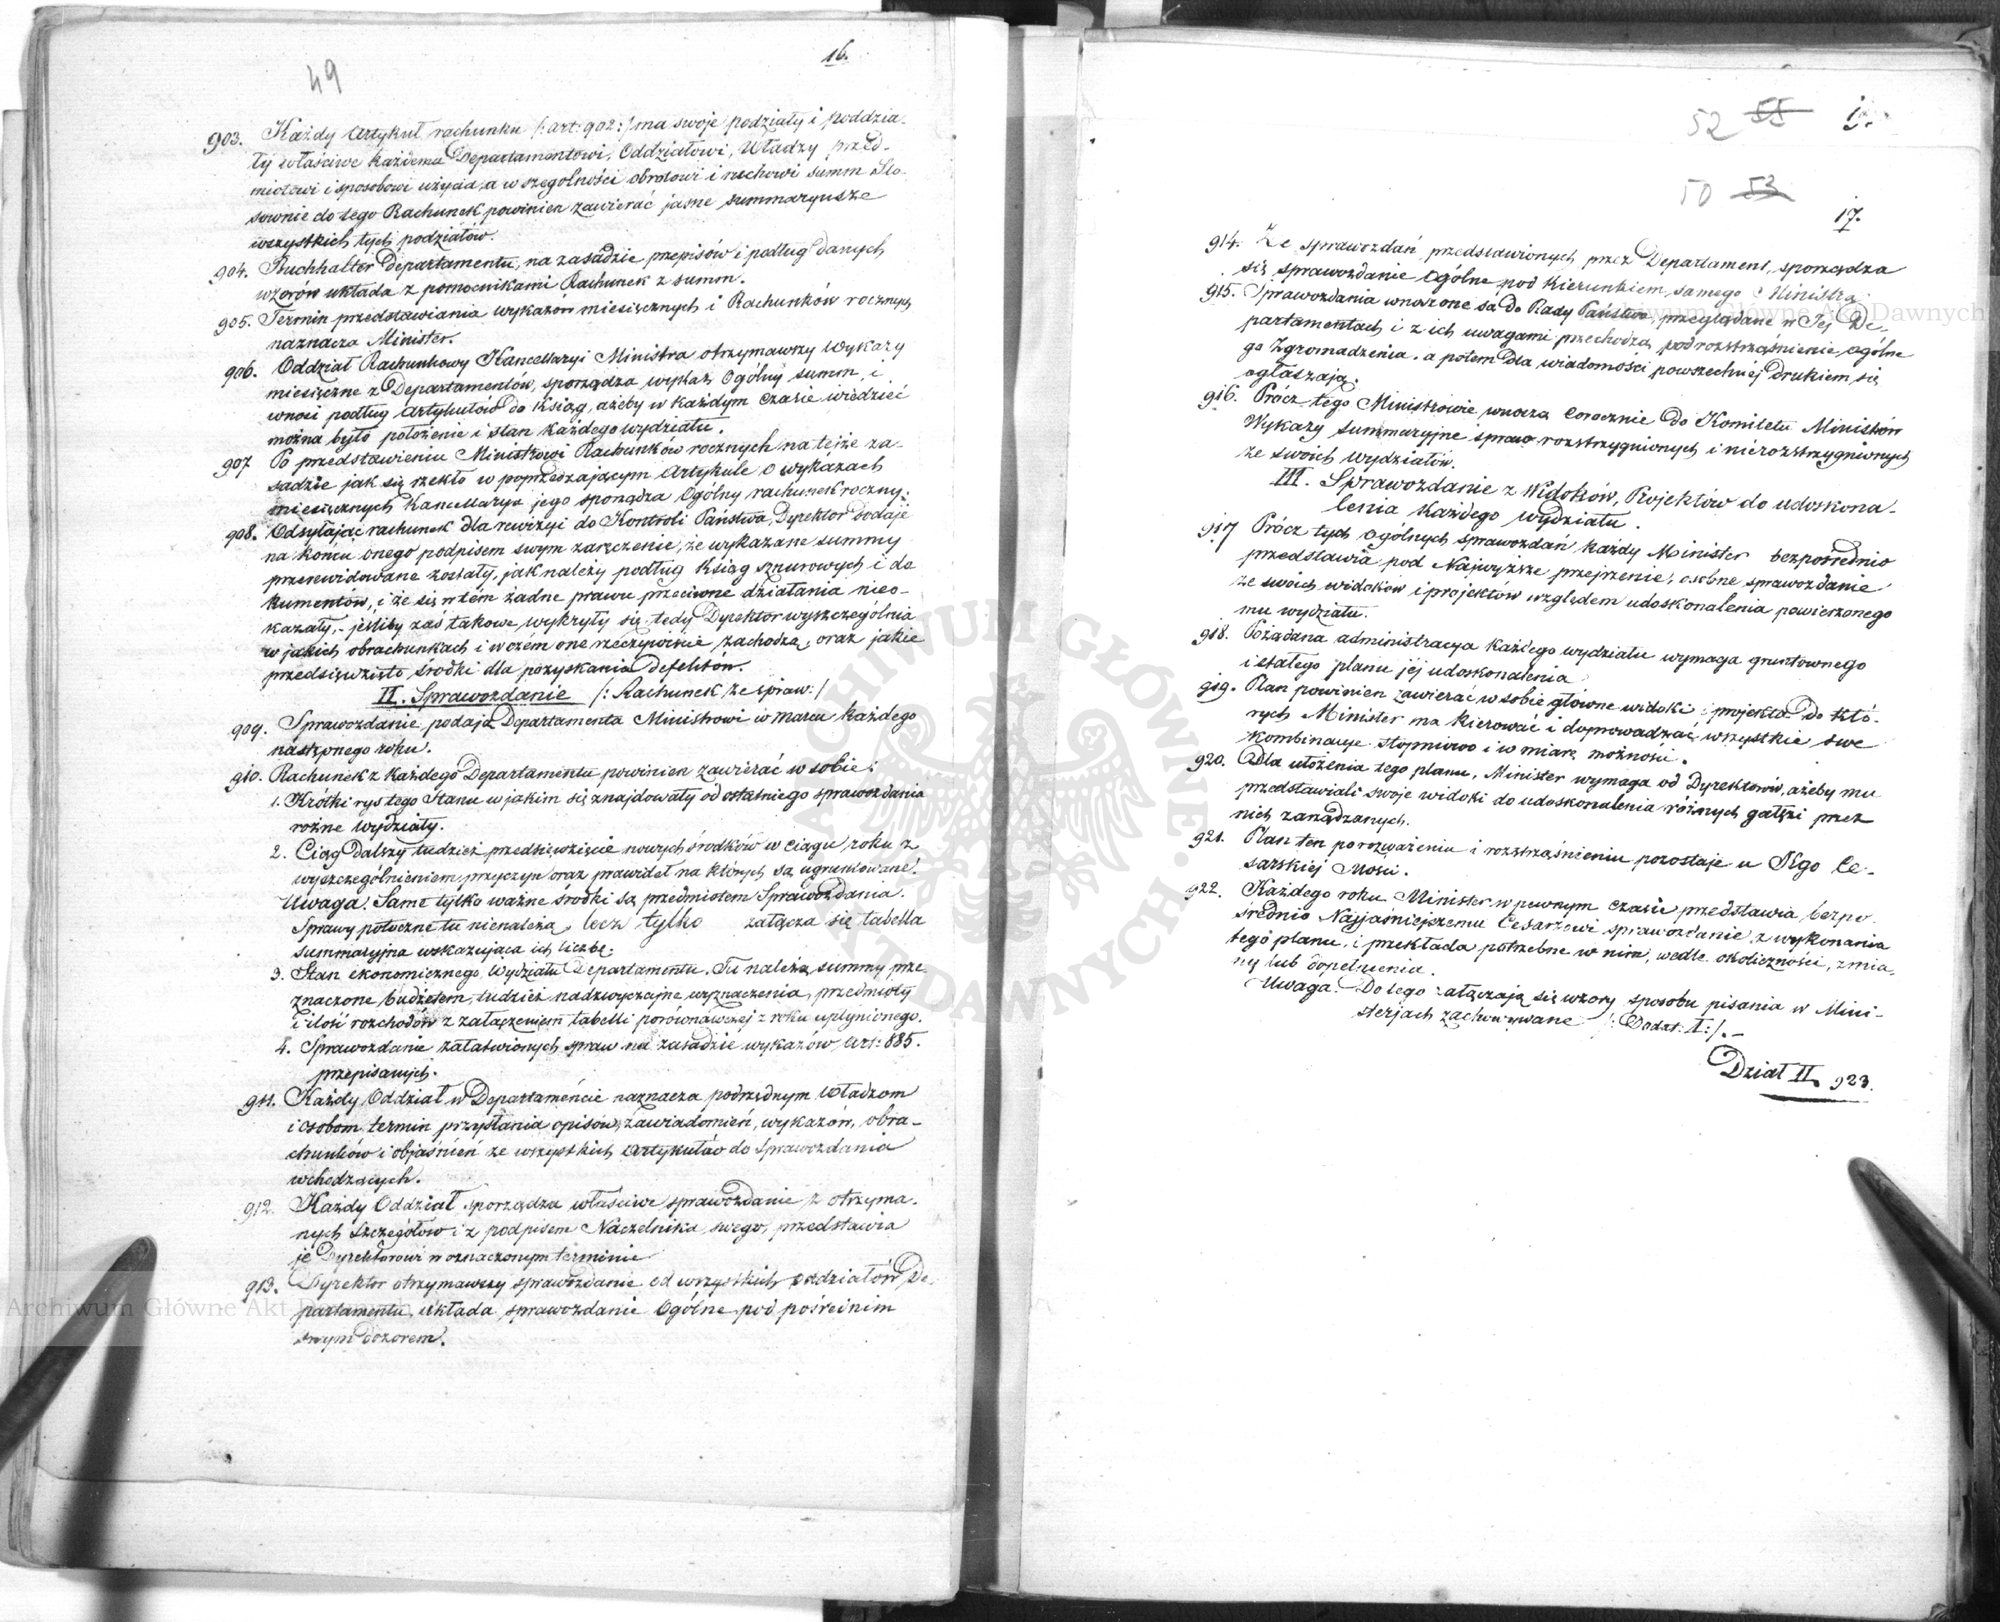 49
16.
903. Każdy Artykuł rachunku /:art: 902:/ ma swoje podziały i poddzia-
ły właściwe każdemu Departamentowi, Oddziałowi, Władzy przed-
miotowi i sposobowi użycia, a w szególności obrotowi i ruchowi summ Sto-
sownie do tego Rachunek powinien zawierać jasne summaryusze
wszystkich tych podziałów.
904. Buchhalter Departamentu, na zasadzie przepisów i podług danych
wzorów układa z pomocnikami Rachunek z summ.
905. Termin przedstawiania wykazów miesięcznych i Rachunków rocznych
naznacza Minister.
906. Oddział Rachunkowy Kancellaryi Ministra otrzymawszy Wykazy
miesięczne z Departamentów, sporządza wykaz Ogólny summ, i
wnosi podług Artykułów do Ksiąg, ażeby w każdym czasie wiedzieć
można było położenie i stan każdego wydziału.
907 Po przedstawieniu Ministrowi Rachunków rocznych na tejże za-
sadzie jak się rzekło w poprzedzającym Artykule o wykazach
miesięcznych Kancellarya jego sporządza Ogólny rachunek roczny.
908. Odsyłając rachunek dla rewizyi do Kontroli Państwa, Dyrektor dodaje
na końcu onego podpisem swym zaręczenie, że wykazane summy
przerewidowane zostały, jak należy podług Ksiąg sznurowych i do
kumentów, i że się w tém żadne prawu przeciwne działania nieo-
kazały, - jeśliby zaś takowe wykryły się, tedy Dyrektor wyszczególnia
w jakich obrachunkach i w czém one rzeczywiście zachodzą, oraz jakie
przedsięwzięto środki dla pozyskania Defektów.
II. Sprawozdanie /: Rachunek ze spraw:/
909. Sprawozdanie podają Departamenta Ministrowi w Marcu każdego
następnego roku.
910. Rachunek z każdego Departamentu powinien zawierać w sobie:
1. Krótki rys tego Stanu w jakim się znajdowały od ostatniego sprawozdania
rożne Wydziały.
2. Ciąg Dalszy tudzież przedsięwzięcie nowych środków w ciągu roku z
wyszczególnieniem przyczyn oraz prawideł na których są ugruntowane.
Uwaga. Same tylko ważne środki są przedmiotem Sprawozdania.
Sprawy potoczne tu nienależą, lecz tylko załącza się tabella
summaryjna wykazująca ich liczbę.
3. Stan ekonomicznego Wydziału Departamentu. Tu należą summy prze-
znaczone budżetem, tudzież nadzwyczajne wyznaczenia, przedmioty
i ilość rozchodów z załączeniem tabelli porównawczej z roku upłynionego.
4. Sprawozdanie załatwionych spraw na zasadzie wykazów Art: 885.
przepisanych.
911. Każdy Oddział w Departamencie naznacza podrzędnym Władzom
i osobom termin przysłania opisów, zawiadomień, wykazów, obra-
chunków i objaśnień ze wszystkich Artykułów do Sprawozdania
wchodzących.
912. Każdy Oddział sporządza właściwe sprawozdanie z otrzyma-
nych Szczegółów i z podpisem Naczelnika swego, przedstawia
je Dyrektorowi w oznaczonym terminie
913. Dyrektor otrzymawszy sprawozdanie od wszystkich oddziałów De-
partamentu, układa sprawozdanie Ogólne pod pośrednim
swym dozorem.
52 55
50 53
17.
914. Ze sprawozdań przedstawionych przez Departament, sporządza
się sprawozdanie Ogólne pod Kierunkiem samego Ministra
915. Sprawozdania wnoszone są do Rady Państwa, przeglądane w Jej De-
partamentach i z ich uwagami przechodzą pod rozstrząśnienie ogólne
go Zgromadzenia, a potem dla wiadomości powszechnej drukiem się
ogłaszają.
916. Prócz tego Ministrowie wnoszą corocznie do Komitetu Ministrów
Wykazy summaryjne spraw rozstrzygnionych i nierozstrzygnionych
ze swoich wydziałów.
III. Sprawozdanie z Widoków, Projektów do udoskona-
lenia Każdego Wydziału.
917 Prócz tych ogólnych sprawozdań każdy Minister bezpośrednio
przedstawia pod Najwyższe przejrzenie, osobne sprawozdanie
ze swoich widoków i projektów względem udoskonalenia powierzonego
mu wydziału.
918. Pożądana administracya każdego wydziału wymaga gruntownego
i stałego planu jej udoskonalenia
919. Plan powinien zawierać w sobie główne widoki i projekta do któ-
rych Minister ma kierować i doprowadzać wszystkie swe
kombinacye stopniowo i w miarę możności.
920. Dla ułożenia tego planu, Minister wymaga od Dyrektorów, ażeby mu
przedstawiali swoje widoki do udoskonalenia różnych gałęzi przez
nich zarządzanych.
921. Plan ten po rozważeniu i rozstrząśnieniu pozostaje u Jego Ce-
sarskiej Mości.
922. Każdego roku Minister w pewnym czasie przedstawia bezpo-
średnio Najjaśniejszemu Cesarzowi sprawozdanie z wykonania
tego planu, i przekłada potrzebne w nim, wedle okoliczności, zmia-
ny lub dopełnienia.
Uwaga. Do tego załączają się wzory sposobu pisania w Mini-
sterjach zachowywane /: Dodat: I:/. -
Dział II. 923.
ARCHIWUM GŁÓWNE AKT DAWNYCH
Archiwum Główne Akt Dawnych
Archiwum Główne Akt Dawnych